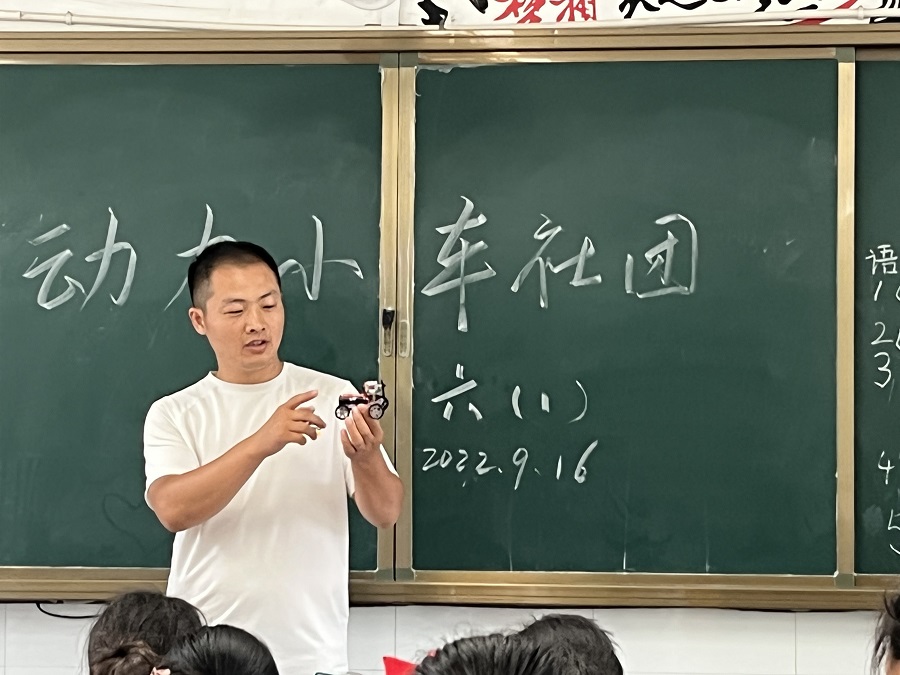 动力小车社团
六（1）
2022.9.16
语
1
2
3
4
5